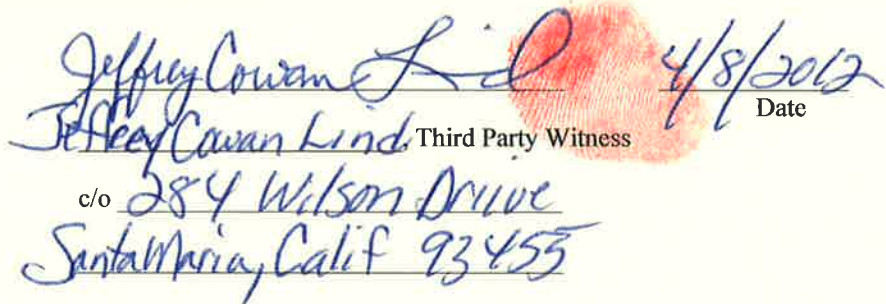 Jeffrey Cowan Lind 4/8/2012
Date
Jeffrey Cowan Lind, Third Party Witness
c/o 284 Wilson Driive
Santa Maria, Calif 93455